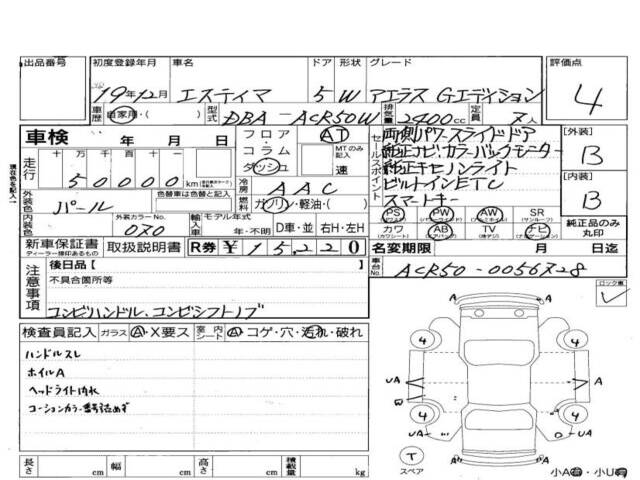 出品番号 初度登録年月 車名 ドア 形状 グレード 評価点
19年12月 エスティマ 5 W アエラス Gエディション 4
車歴 自家用・( ) 型式 DBA-ACR50W 排気量 2400cc 定員 7人
車検 年 月 日 フロア AT
走行 十 万 千 百 十 一 コラム MTのみ記入
50000 km ダッシュ 速
外装色 パール 色替車は色替と記入 冷房 AAC
燃料 ガソリン・軽油・( )
内装色 外装カラーNo. 070 輸入車 モデル年式 年・不明 D車・並 右H・左H
セールスポイント
両側パワースライドドア
純正ナビ・カラーバックモニター
純正キセノンライト
ビルトインETC
スマートキー
【外装】 B
【内装】 B
PS PW AW SR
カワ AB TV ナビ
純正品のみ丸印
新車保証書 取扱説明書 R券 ¥15,220
ディーラー捺印あるもの
名変期限 月 日迄
車台No. ACR50-0056728
注意事項 後日品〔 〕
不具合箇所等
コンビハンドル、コンビシフトノブ
ロック車
検査員記入 ガラス A・X要ス 室内シート A・コゲ・穴・汚れ・破れ
ハンドルスレ
ホイルA
ヘッドライト内水
コーションカラー番号読めず
A
4 4
UA A
4 4
UA UA
T
スペア
A
小A有・小U有
長さ cm 幅 cm 高さ cm 積載量 kg
現在色を記入